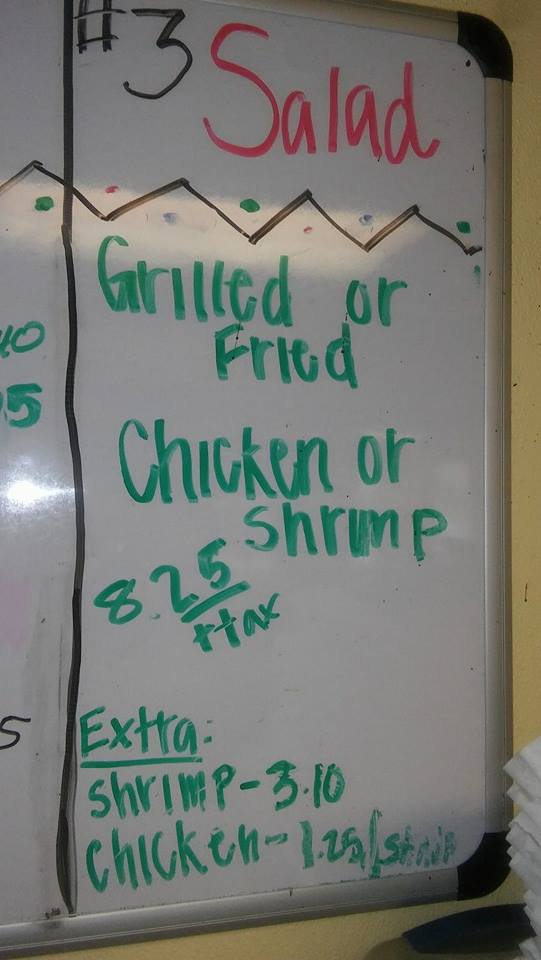 #3
Salad
Grilled or
Fried
Chicken or
shrimp
8.25
+tax
Extra:
shrimp - 3.10
chicken - 1.25/strip
40
5
5